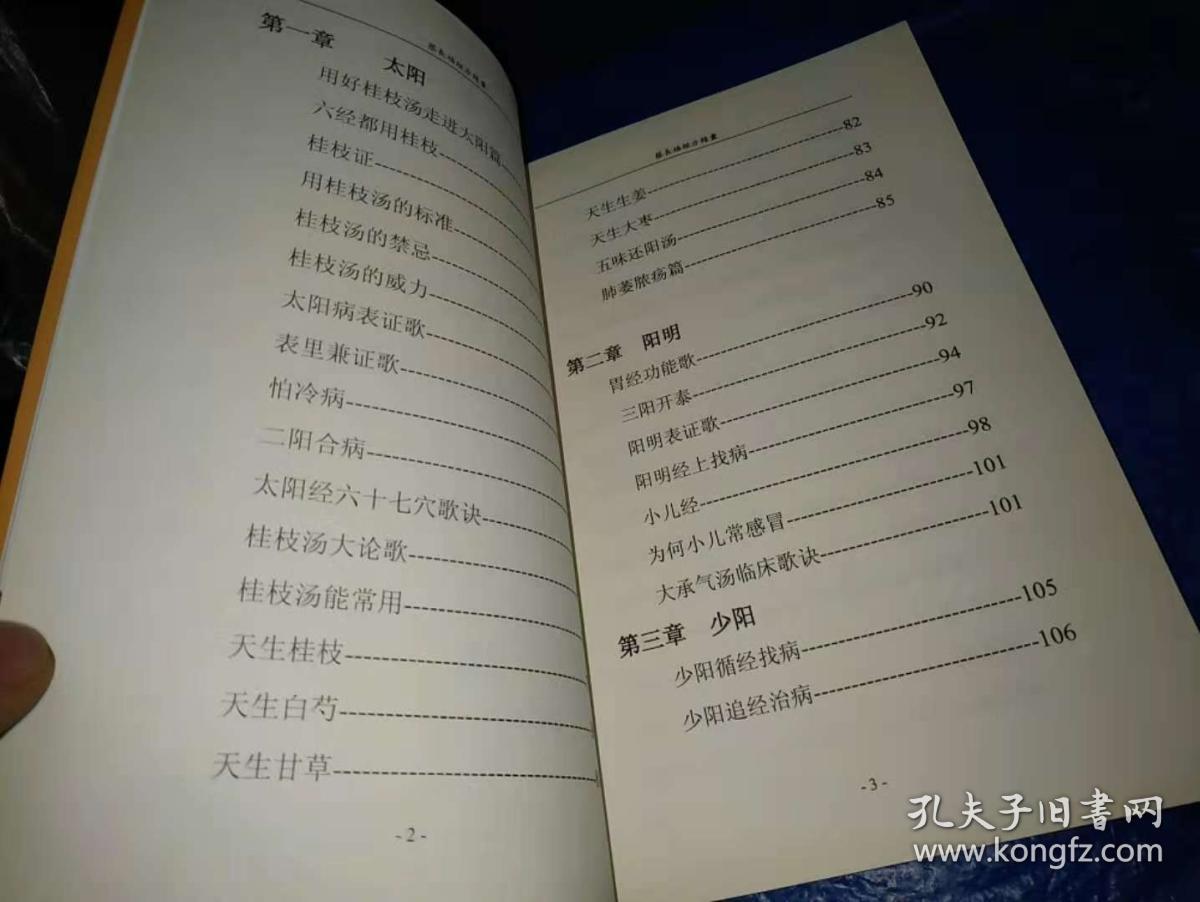 第一章 太阳
用好桂枝汤走进太阳篇
六经都用桂枝
桂枝证
用桂枝汤的标准
桂枝汤的禁忌
桂枝汤的威力
太阳病表证歌
表里兼证歌
怕冷病
二阳合病
太阳经六十七穴歌诀
桂枝汤大论歌
桂枝汤能常用
天生桂枝
天生白芍
天生甘草
- 2 -
天生生姜 82
天生大枣 83
五味还阳汤 84
肺萎脓疡篇 85
第二章 阳明
胃经功能歌 90
三阳开泰 92
阳明表证歌 94
阳明经上找病 97
小儿经 98
为何小儿常感冒 101
大承气汤临床歌诀 101
第三章 少阳
少阳循经找病 105
少阳追经治病 106
- 3 -
孔夫子旧书网
www.kongfz.com